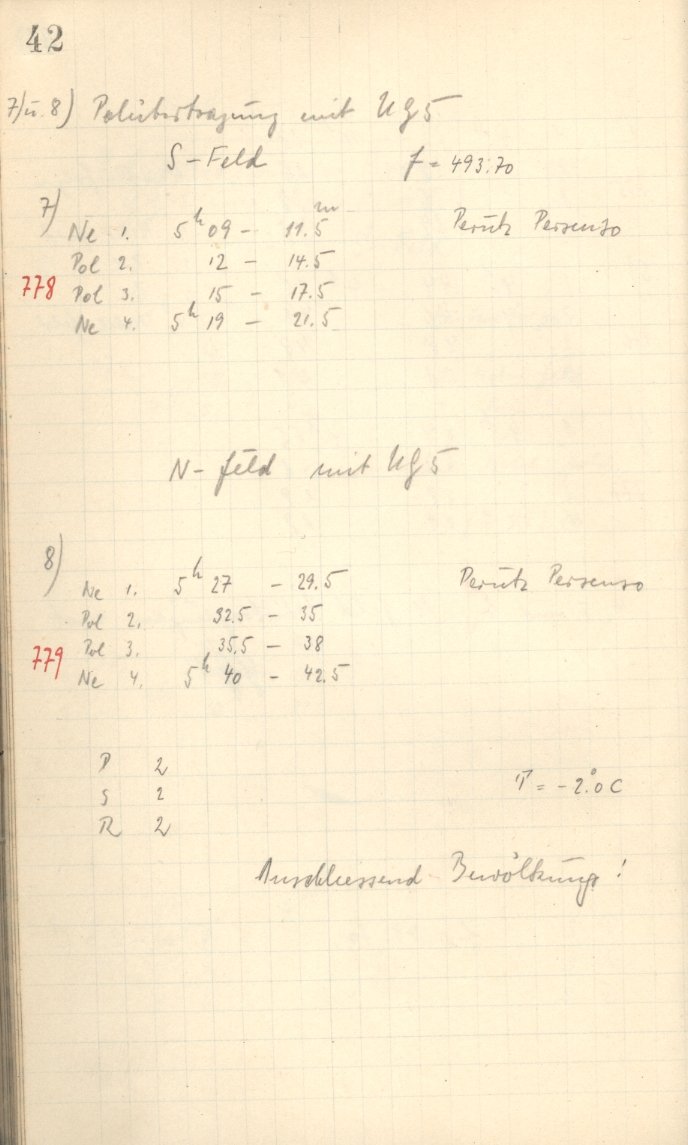 42
7) u. 8) Polübertragung mit UG5
S-Feld f = 493.70
7)
Ne 1. 5h 09 - 11.5m Perutz Persenso
Pol 2. 12 - 14.5
778 Pol 3. 15 - 17.5
Ne 4. 5h 19 - 21.5
N-Feld mit UG5
8)
Ne 1. 5h 27 - 29.5 Perutz Persenso
Pol 2. 32.5 - 35
779 Pol 3. 35.5 - 38
Ne 4. 5h 40 - 42.5
D 2
S 2 T = -2.°0 C
R 2
Anschliessend Bewölkung!